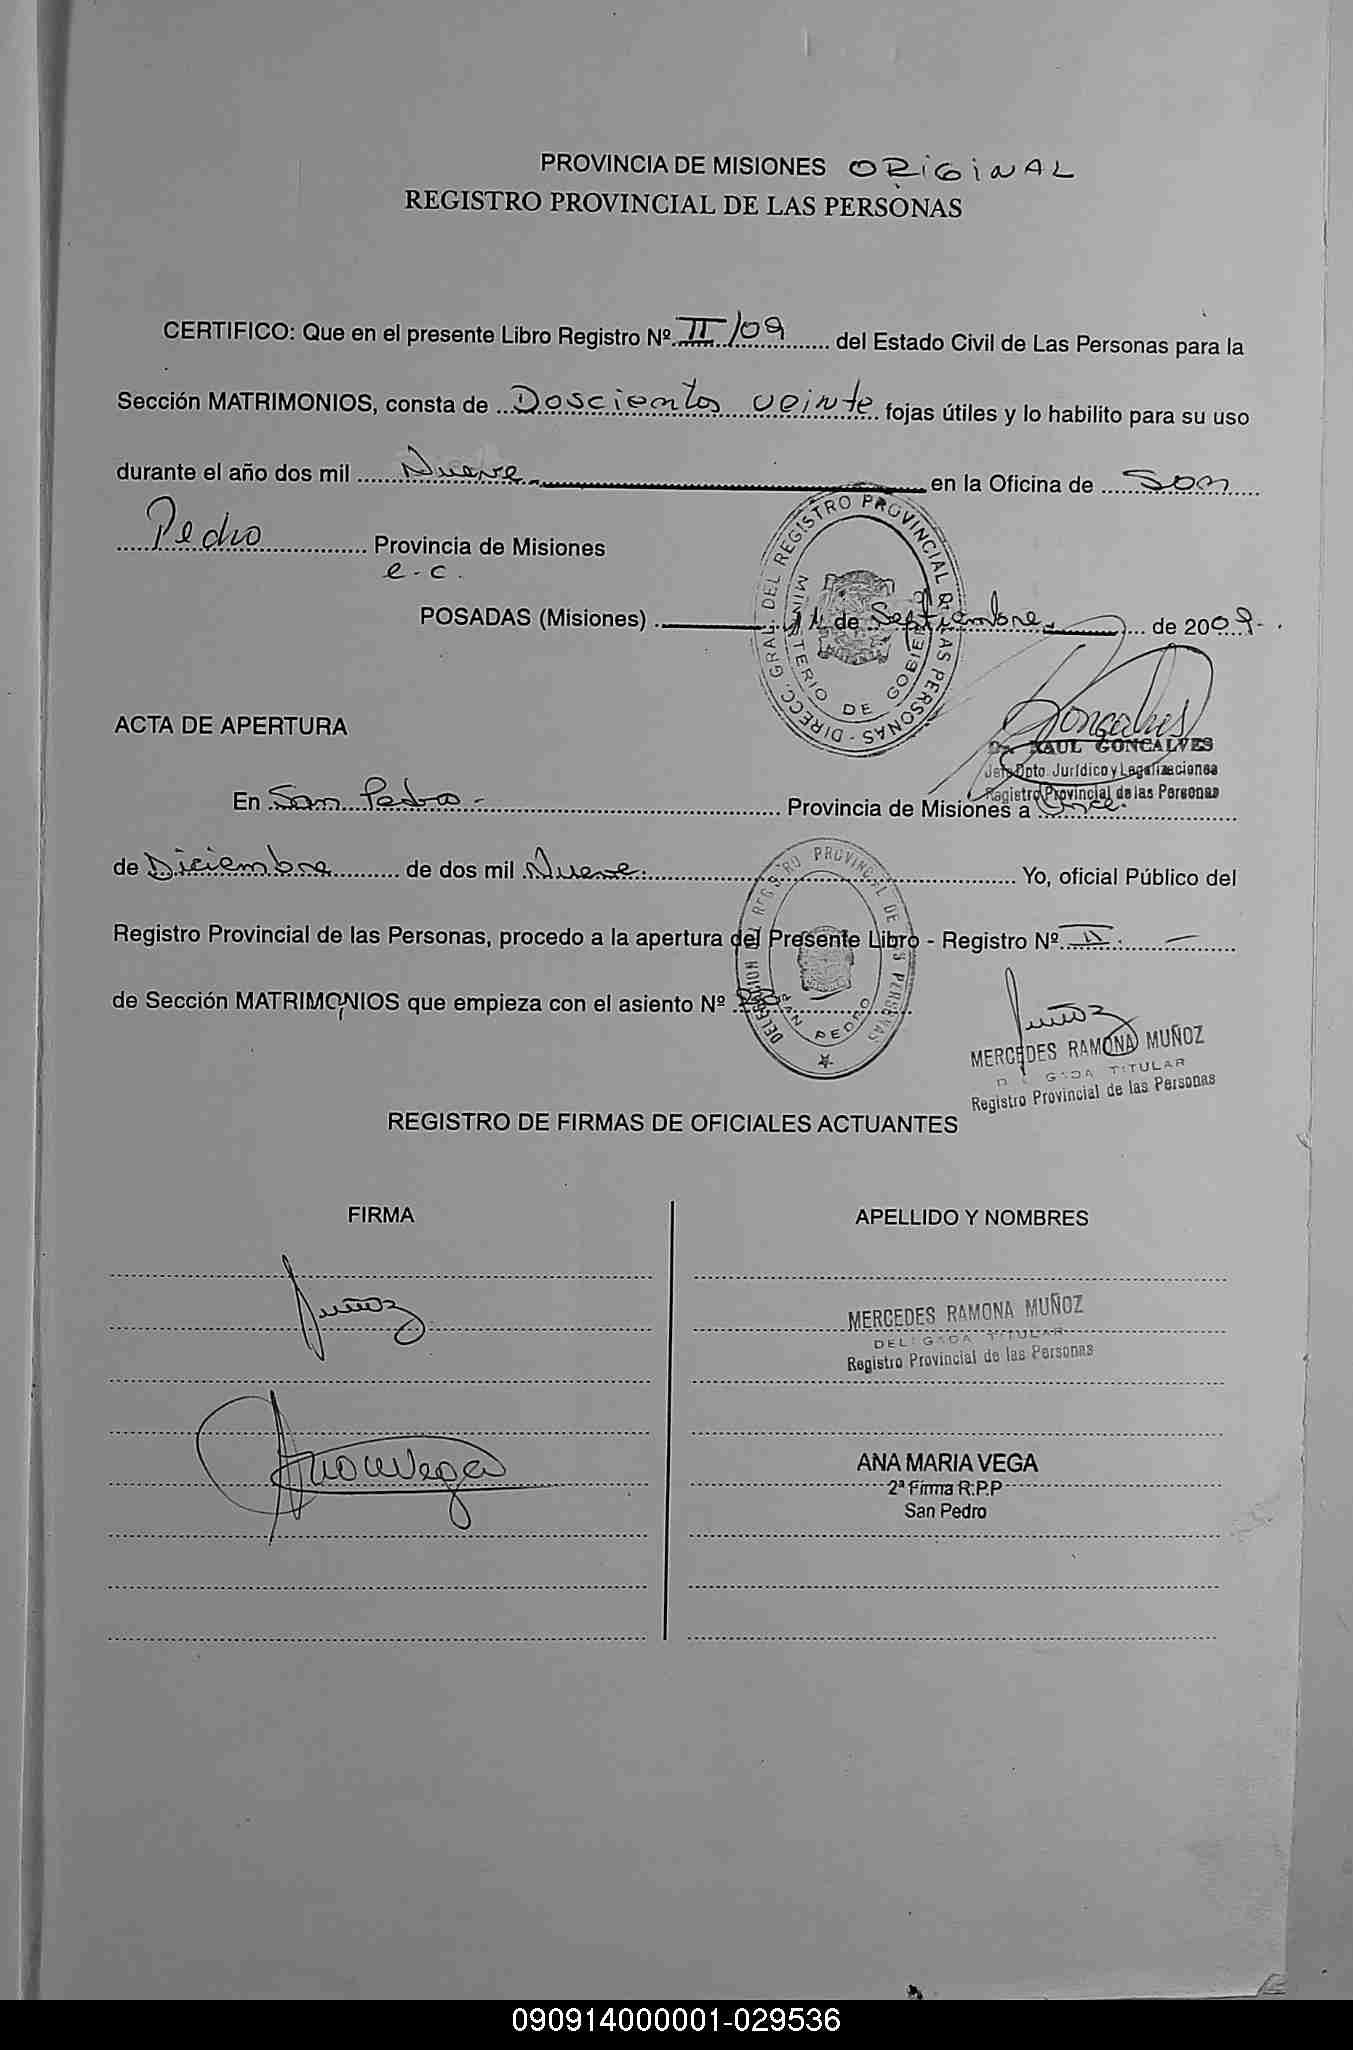 PROVINCIA DE MISIONES ORIGINAL
REGISTRO PROVINCIAL DE LAS PERSONAS
CERTIFICO: Que en el presente Libro Registro Nº II/09 del Estado Civil de Las Personas para la
Sección MATRIMONIOS, consta de Doscientos veinte fojas útiles y lo habilito para su uso
durante el año dos mil Nueve en la Oficina de San
Pedro Provincia de Misiones
e.c.
POSADAS (Misiones) 14 de Septiembre de 2009
DIRECC. GRAL. DEL REGISTRO PROVINCIAL DE LAS PERSONAS
MINISTERIO DE GOBIERNO
Goncalves
Dr. RAUL GONCALVES
Jefe Dpto. Jurídico y Legalizaciones
Registro Provincial de las Personas
ACTA DE APERTURA
En San Pedro - Provincia de Misiones a Once
de Diciembre de dos mil Nueve. Yo, oficial Público del
Registro Provincial de las Personas, procedo a la apertura del Presente Libro - Registro Nº II. -
de Sección MATRIMONIOS que empieza con el asiento Nº
DELEGACION DEL REGISTRO PROVINCIAL DE LAS PERSONAS
SAN PEDRO
Muñoz
MERCEDES RAMONA MUÑOZ
DELEGADA TITULAR
Registro Provincial de las Personas
REGISTRO DE FIRMAS DE OFICIALES ACTUANTES
FIRMA APELLIDO Y NOMBRES
Muñoz MERCEDES RAMONA MUÑOZ
DELEGADA TITULAR
Registro Provincial de las Personas
Ana M Vega ANA MARIA VEGA
2ª Firma R.P.P
San Pedro
090914000001-029536